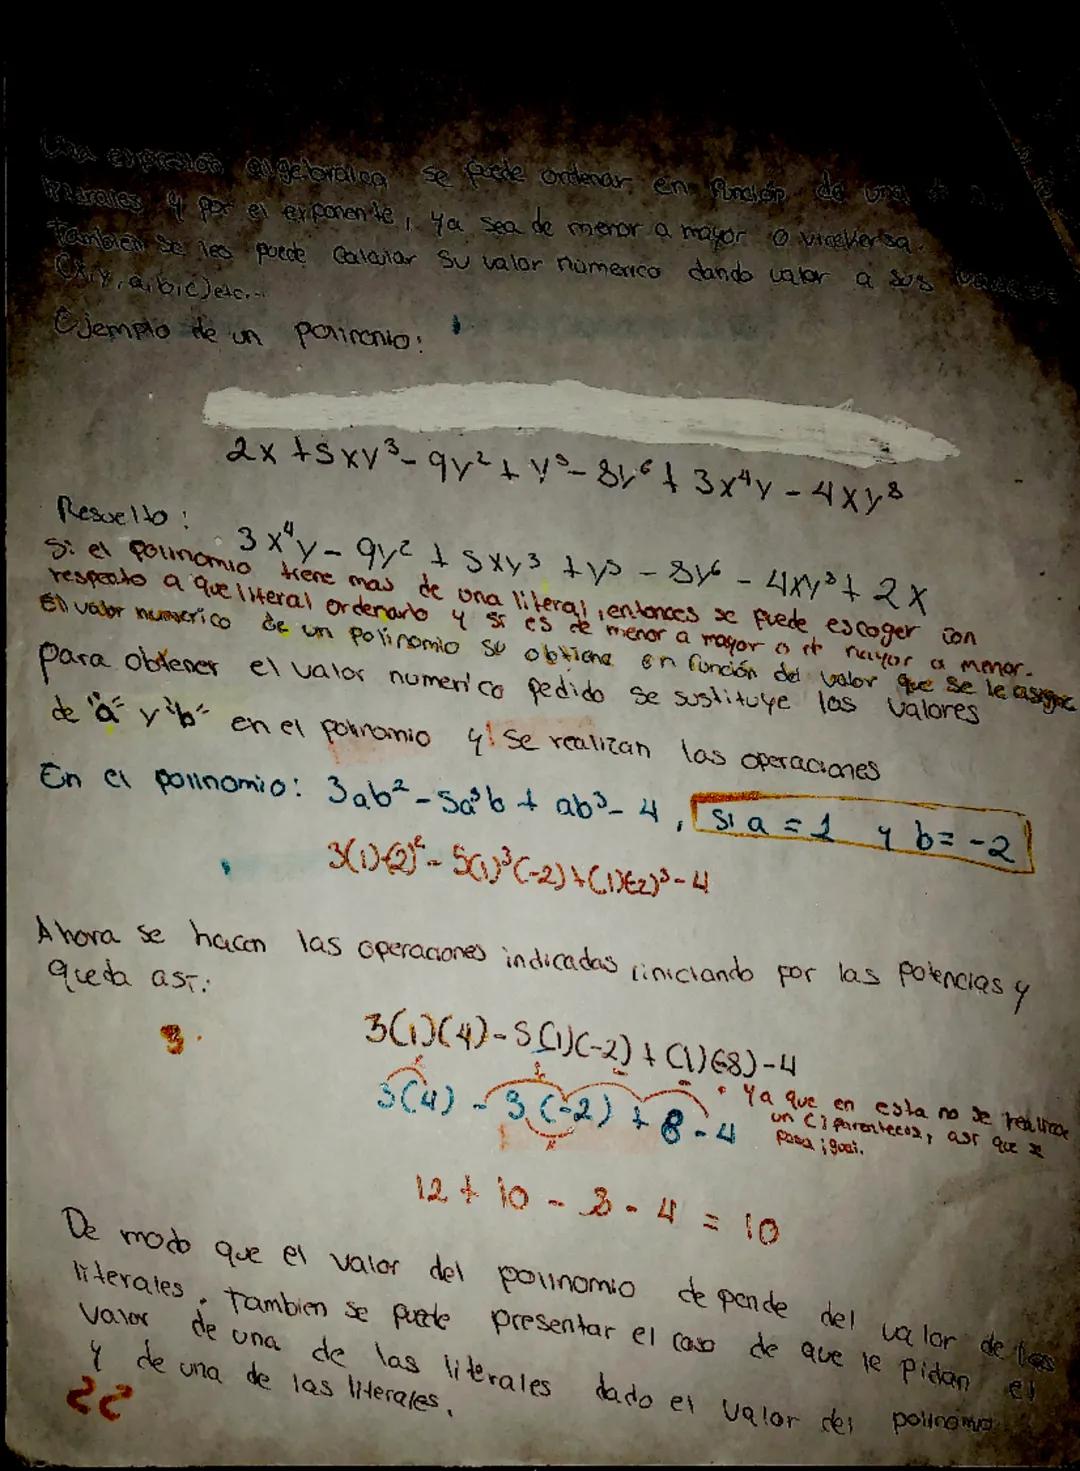 Una expresión algebraica se puede ordenar en función de una
literales y por el exponente, ya sea de menor a mayor o viceversa.
También se les puede calcular su valor númerico dando valor a sus
(x,y,a,b,c)etc...
Ejemplo de un polinomio:
2x + 5xy³ - 9y² + y⁵ - 8y⁶ + 3x⁴y - 4xy⁸
Resuelto:
3x⁴y - 9y² + 5xy³ + y⁵ - 8y⁶ - 4xy⁸ + 2x
Si el polinomio tiene mas de una literal, entonces se puede escoger con
respecto a que literal ordenarlo y si es de menor a mayor o de mayor a menor.
El valor numerico de un polinomio se obtiene en función del valor que se le asigne
para obtener el valor numerico pedido se sustituye los valores
de "a" y "b" en el polinomio y se realizan las operaciones
En el polinomio: 3ab² - 5a³b + ab³ - 4, si a = 1 y b = -2
3(1)(-2)² - 5(1)³(-2) + (1)(-2)³ - 4
Ahora se hacen las operaciones indicadas iniciando por las potencias y
queda así:
3(1)(4) - 5(1)(-2) + (1)(-8) - 4
3(4) - 5(-2) + 8 - 4
• Ya que en esta no se realiza
un () parentecos, así que se
pasa igual.
12 + 10 - 8 - 4 = 10
De modo que el valor del polinomio depende del valor de las
literales. Tambien se puede presentar el caso de que le pidan el
valor de una de las literales dado el valor del polinomio
y de una de las literales.
22